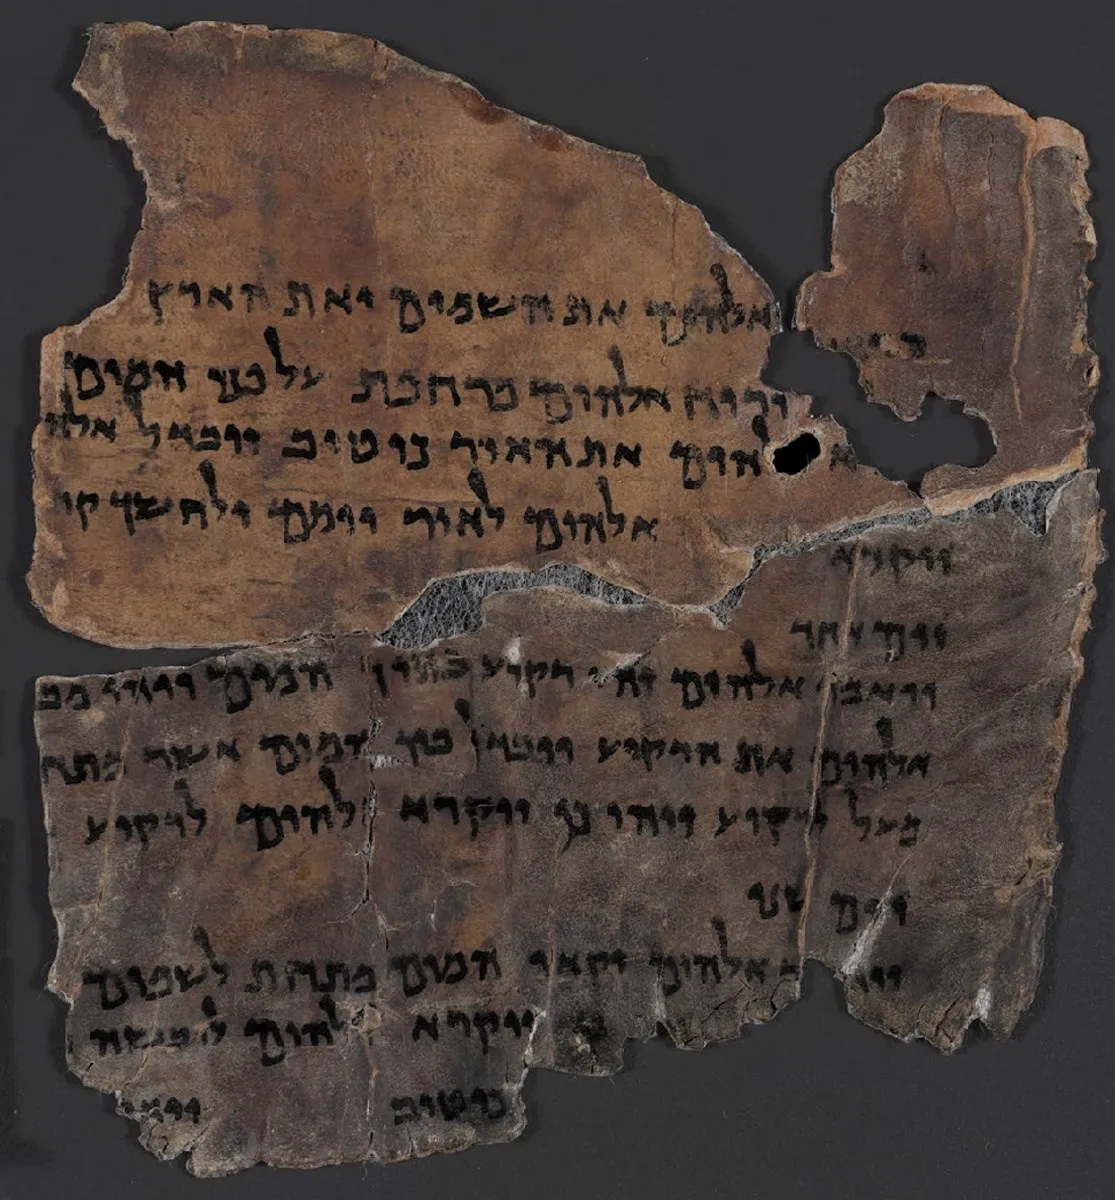 אלהים את השמים ואת הארץ
ורוח אלהים מרחפת על פני המים
אלהים את האור כי טוב ויבדל אלה
ויקרא אלהים לאור יומם ולחשך קר
יום אחד
ויאמר אלהים יהי רקיע בתוך המים ויהי מב
אלהים את הרקיע ויבדל בין המים אשר מתח
מעל לרקיע ויהי כן ויקרא אלהים לרקיע
יום שני
ויאמר אלהים יקוו המים מתחת לשמים
ויקרא אלהים ליבשה
כי טוב ויא